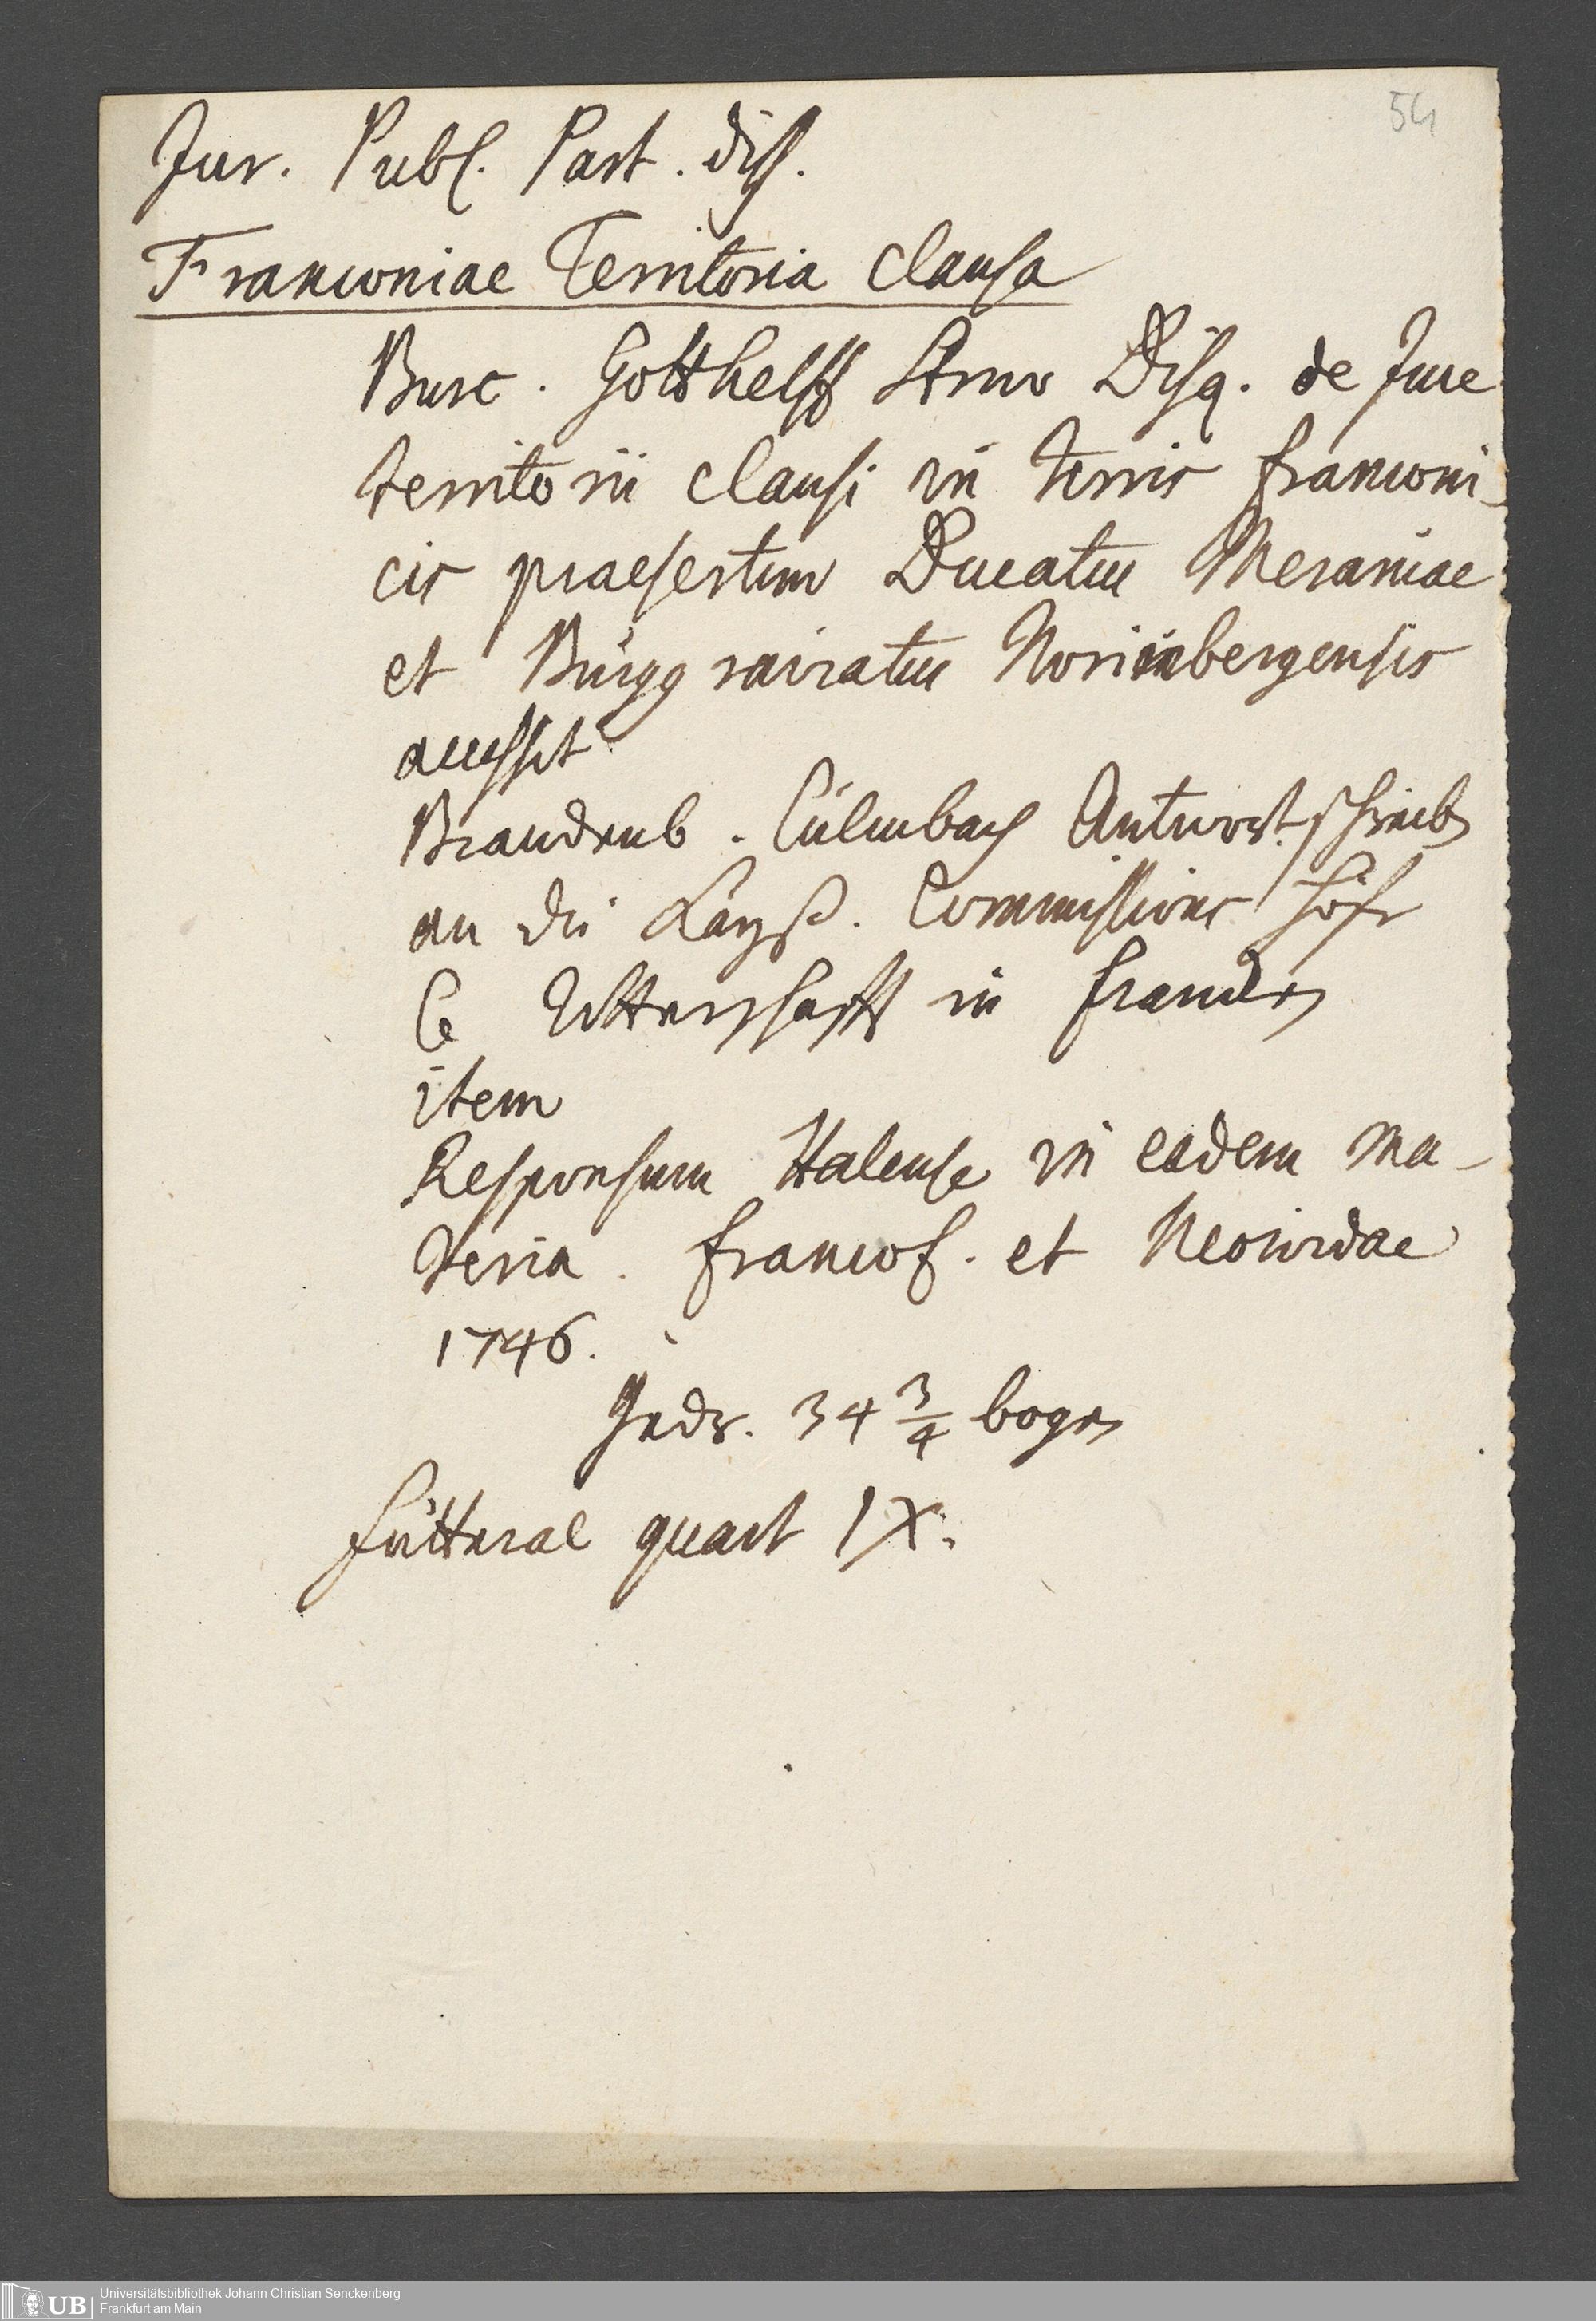 54
Jur. Publ. Part. diss.
Franconiae Territoria clausa
Burc. Gotthelff Struv Disq. de Jure
territorii clausi in terris franconi-
cis praesertim Ducatus Meraniae
et Burggraviatus Norimbergensis
accessit
Brandenb. Culmbach Antwort schreiben
an die Kayß. Commissions Höfe
C Ritterschafft in francken
item
Responsum Halense in eadem ma-
teria. francof. et Neovidae
1746.
Gedr. 34 3/4 bogen
futteral quart IX.
UB
Universitätsbibliothek Johann Christian Senckenberg
Frankfurt am Main